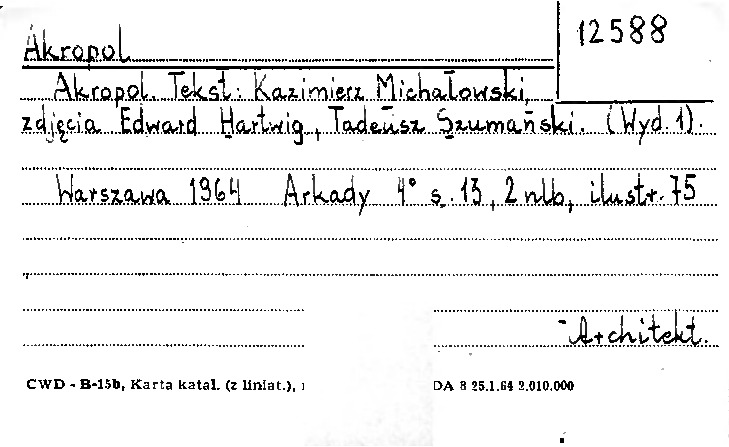 12588
Akropol
Akropol. Tekst: Kazimierz Michałowski,
zdjęcia Edward Hartwig, Tadeusz Szumański. (Wyd. 1).
Warszawa 1964 Arkady 4° s. 13, 2 nlb, ilustr. 75
Architekt.
CWD - B-15b, Karta katal. (z liniat.), DA 8 25.1.64 2.010.000